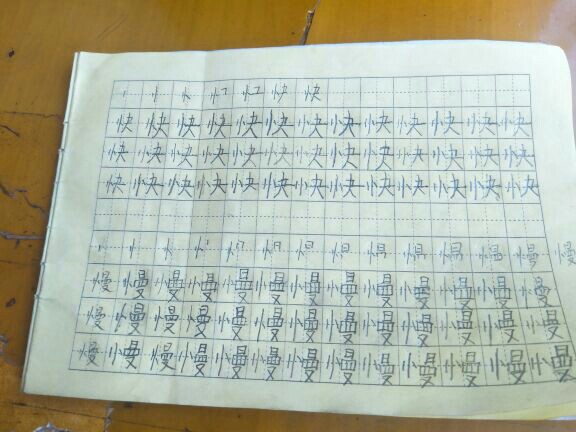 忄 快
快快快快快快快快快快快快快
快快快快快快快快快快快快快
快快快快快快快快快快快快快
忄 慢
慢慢慢慢慢慢慢慢慢慢慢慢慢
慢慢慢慢慢慢慢慢慢慢慢慢慢
慢慢慢慢慢慢慢慢慢慢慢慢慢